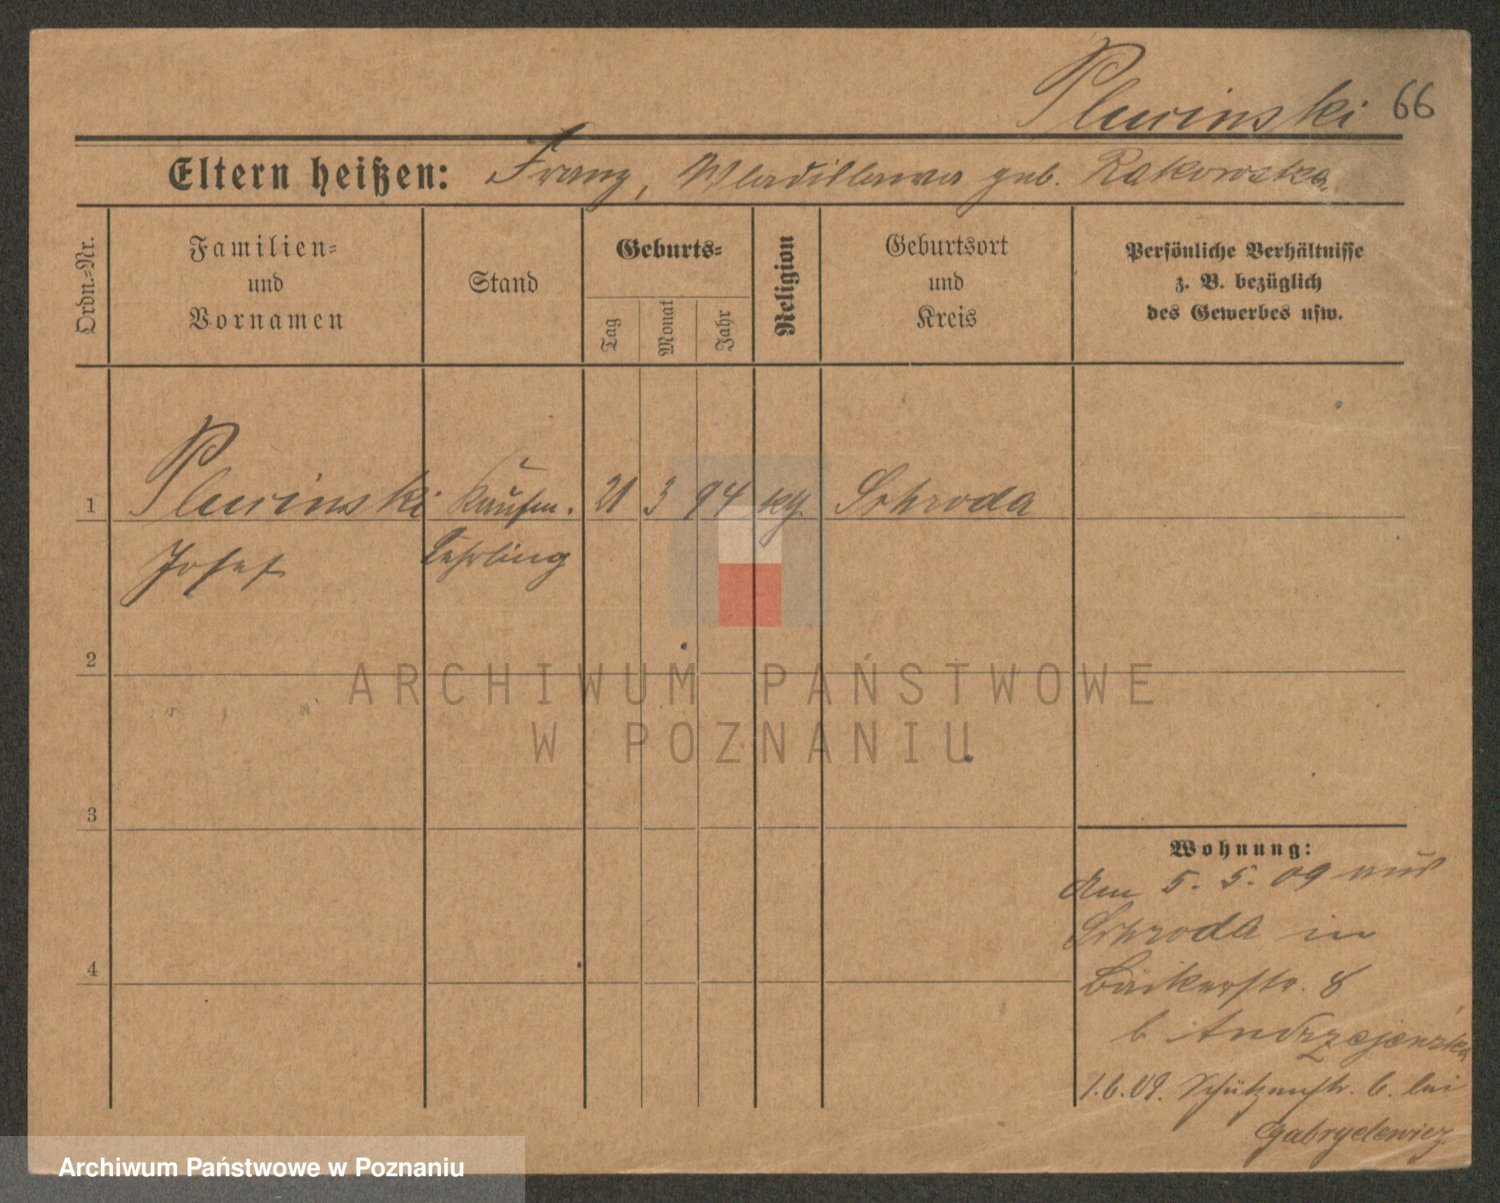 Plucinski 66
Eltern heißen: Franz, Wladislawa geb. Rakowska
Ordn.-Nr.
Familien-
und
Vornamen
Stand
Geburts-
Tag
Monat
Jahr
Religion
Geburtsort
und
Kreis
Persönliche Verhältnisse
z. B. bezüglich
des Gewerbes usw.
1 Plucinski Kaufm. 21 3 94 kg. Schroda
Josef Lehrling
2
3
4
Wohnung:
Am 5. 5. 09 aus
Schroda in
Bäckerstr. 8
b Andrzejewska
1.6.09. Schützenstr. 6. bei
Gabryelewicz
ARCHIWUM PAŃSTWOWE
W POZNANIU
Archiwum Państwowe w Poznaniu